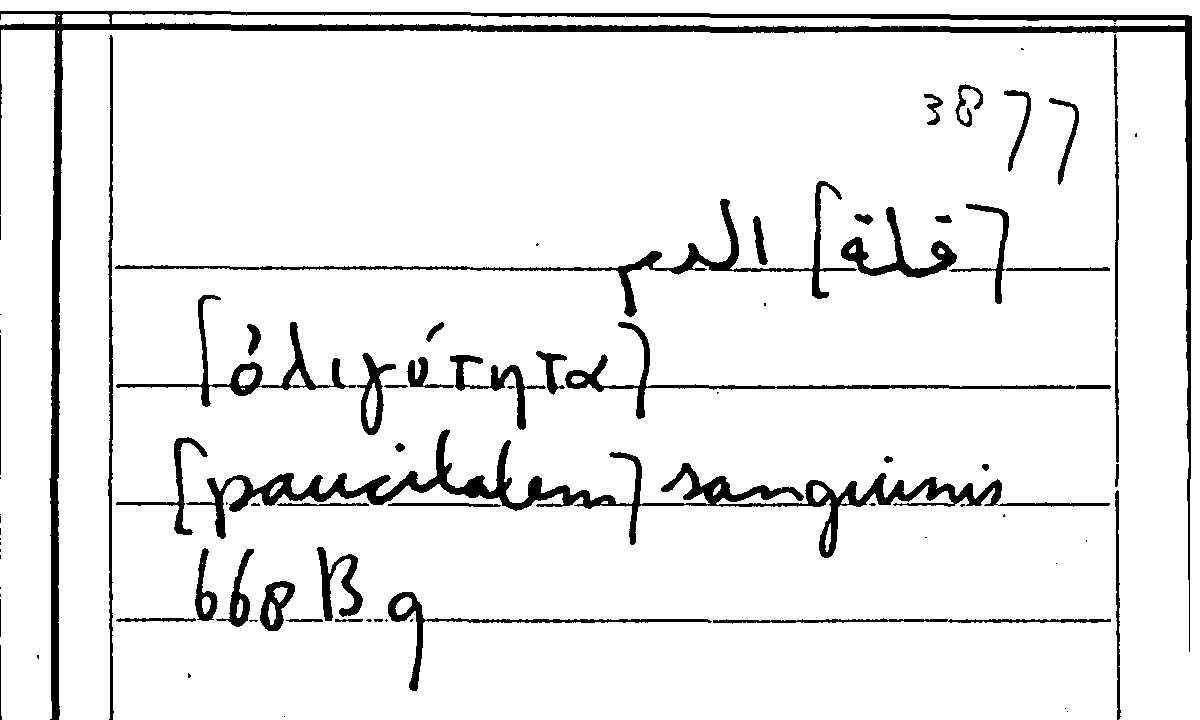 3877
[قلة] الدم
[ὀλιγότητα]
[paucitatem] sanguinis
668 B 9